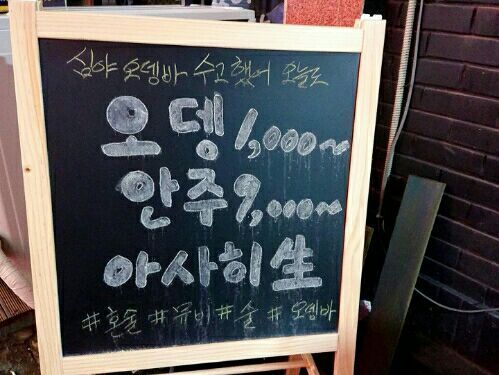 심야 오뎅바 수고했어 오늘도
오뎅 1,000~
안주 9,000~
아사히生
#혼술 #뮤비 #술 # 오뎅바